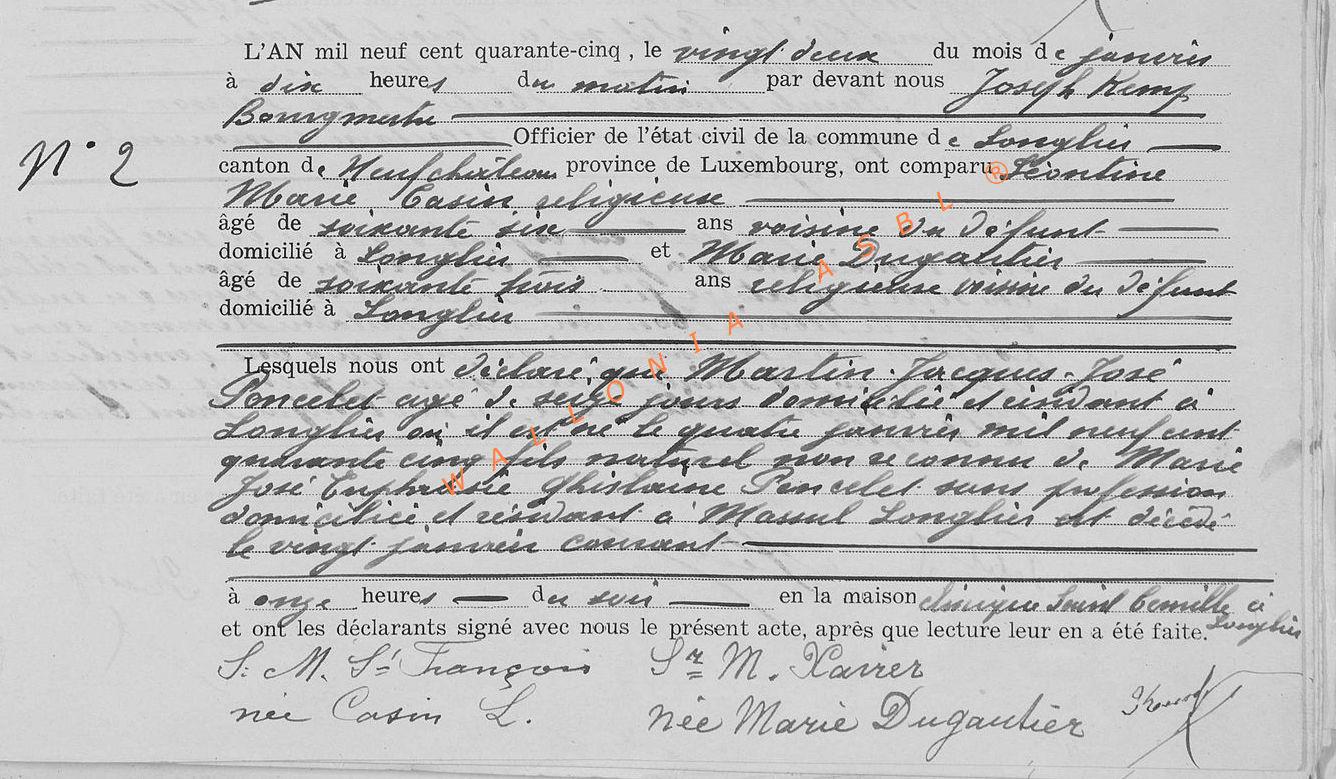 L'AN mil neuf cent quarante-cinq, le vingt deux du mois de janvier
à dix heures du matin par devant nous Joseph Kemp
Bourgmestre
Officier de l'état civil de la commune de Longlier
N° 2
canton de Neufchâteau province de Luxembourg, ont comparu Léontine
Marie Casin religieuse
âgé de soixante six ans voisine du défunt
domicilié à Longlier et Marie Dugautier
âgé de soixante trois ans religieuse voisine du défunt
domicilié à Longlier
Lesquels nous ont déclaré que Martin-Jacques-José
Poncelet agé de seize jours domicilié et résidant à
Longlier où il est né le quatre janvier mil neuf cent
quarante cinq fils naturel non reconnu de Marie
José Euphrasie Ghislaine Poncelet sans profession
domiciliée et résidant à Massul Longlier est décédé
le vingt janvier courant
à onze heures du soir en la maison clinique Saint Camille à
Longlier
et ont les déclarants signé avec nous le présent acte, après que lecture leur en a été faite.
S. M. St François Sr M. Xavier
née Casin L. née Marie Dugautier
WALLONIA ASBL ®